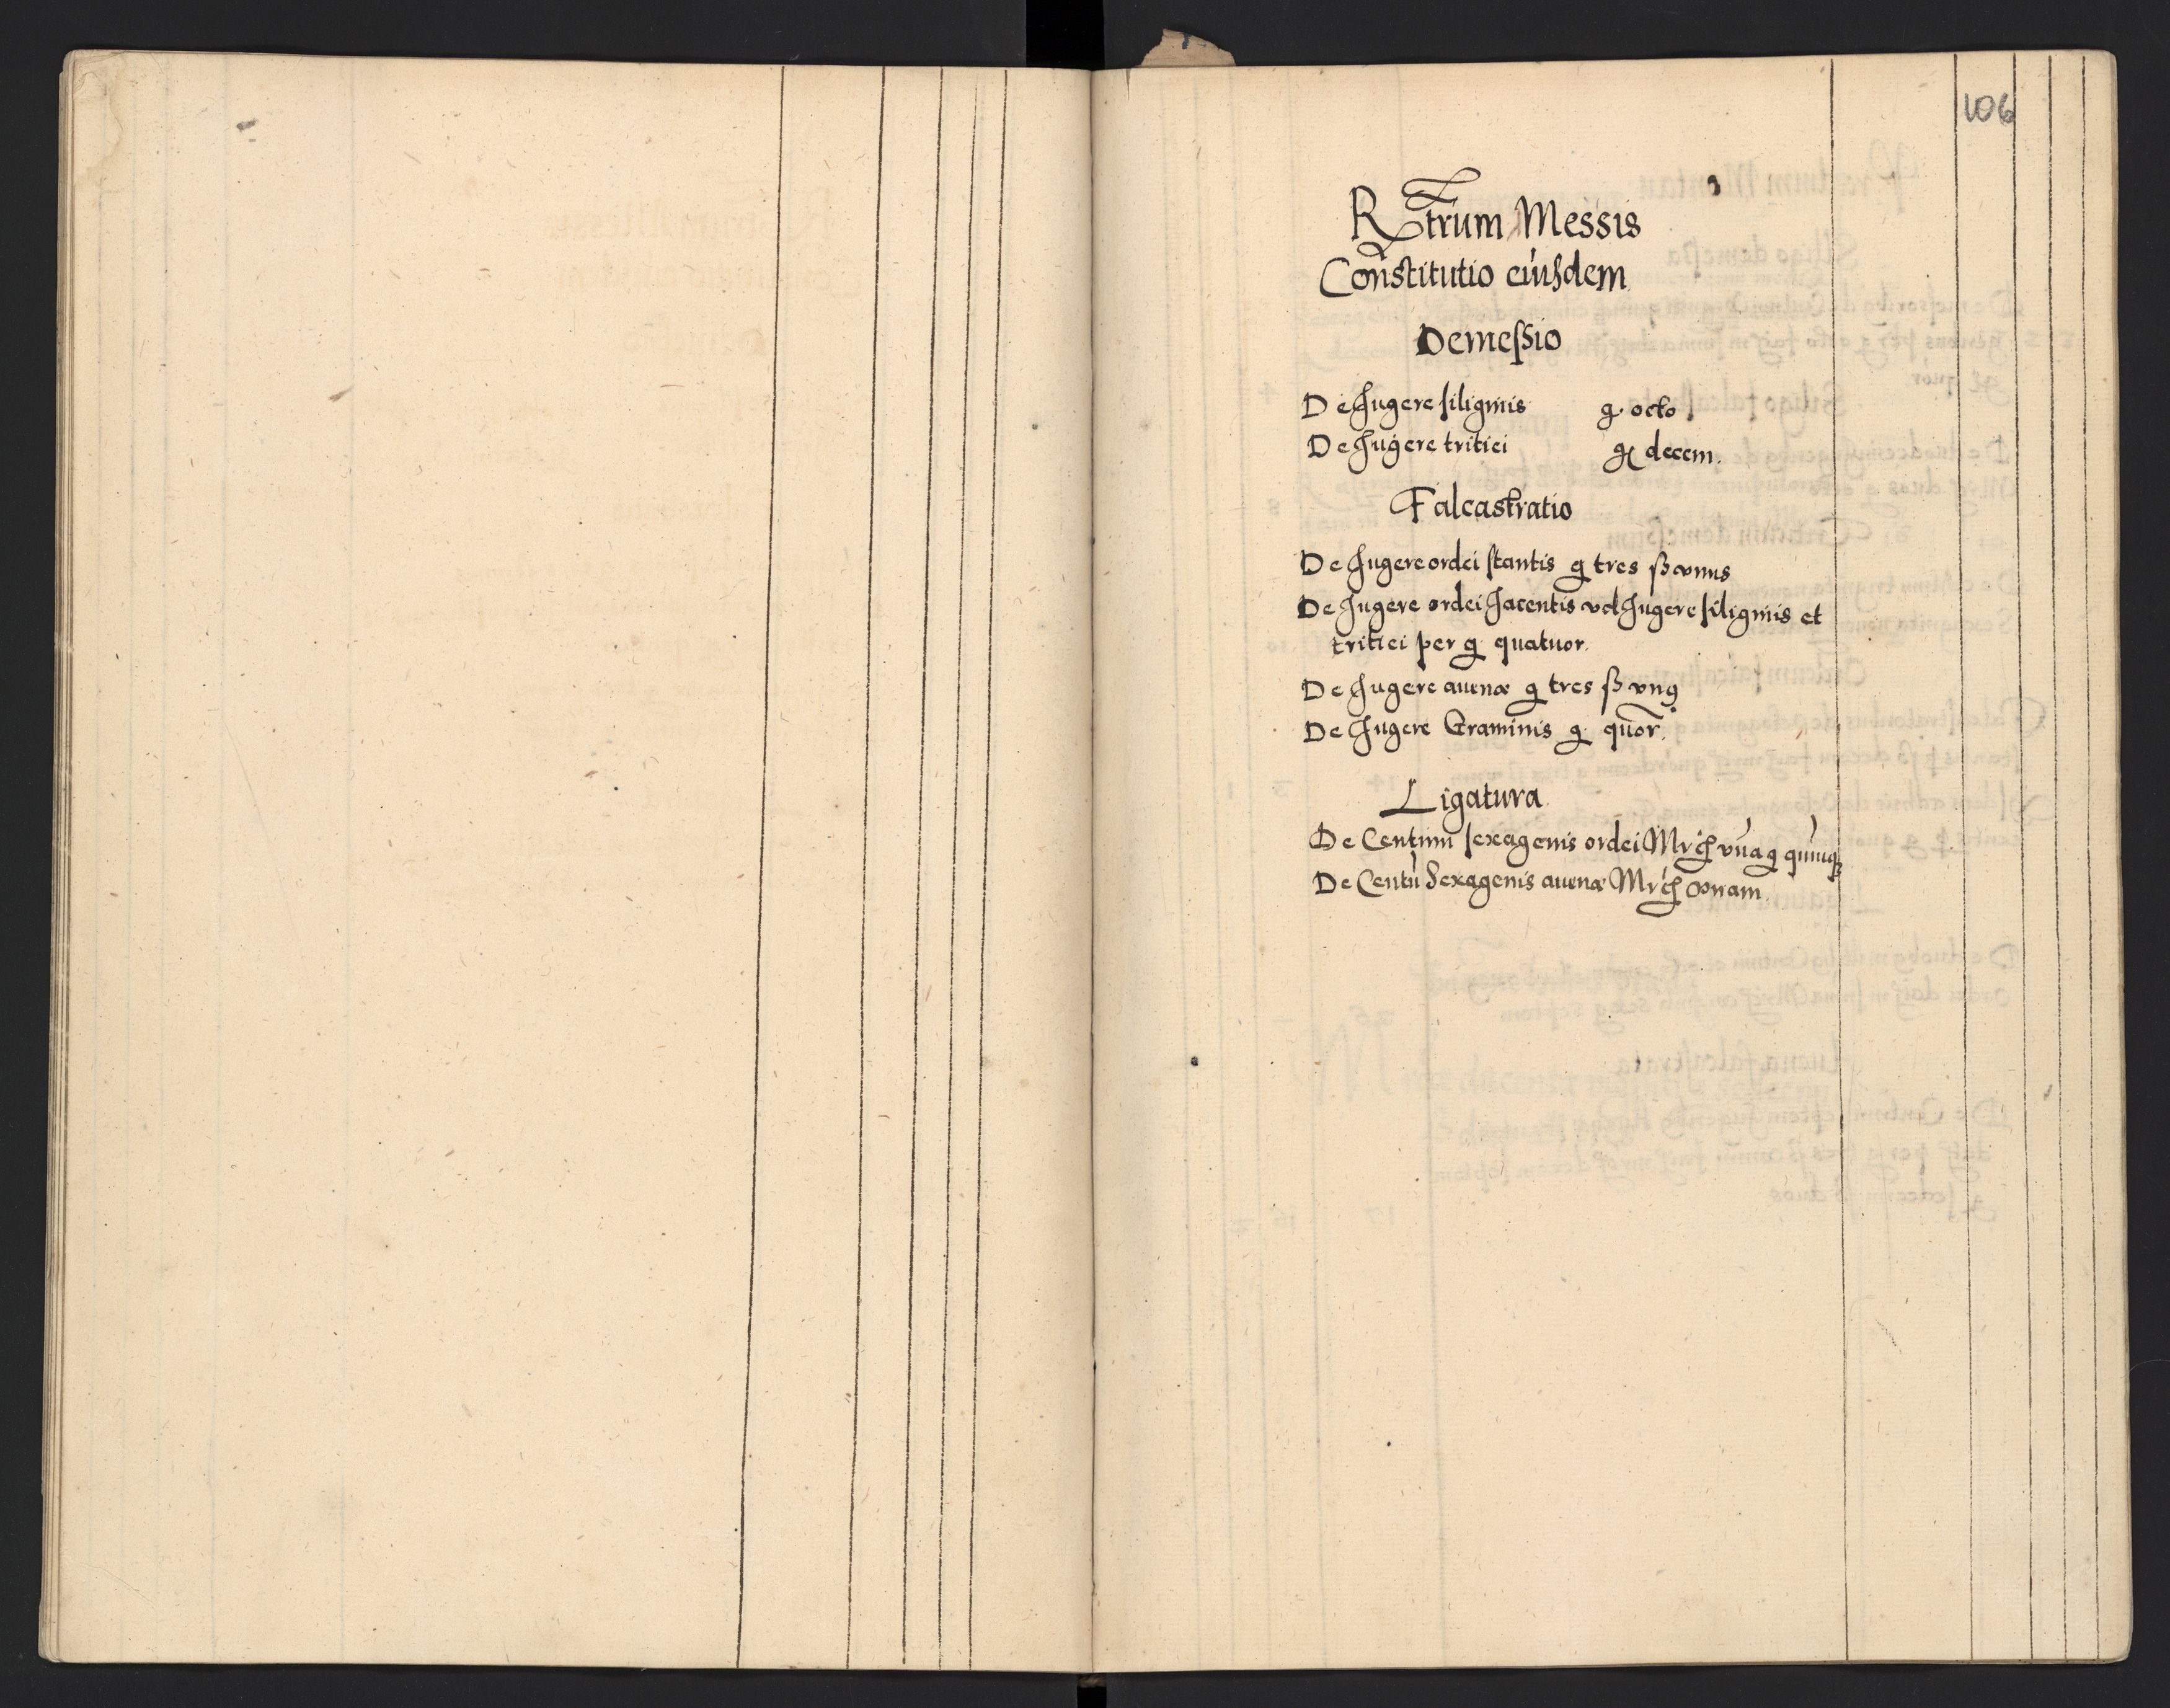 106
Rtrum Messis
Constitutio eiusdem
Demessio
De Jugere siliginis g. octo
De Jugere tritici g decem.
Falcastratio
De Jugere ordei stantis g tres ß vnus
De Jugere ordei Jacentis vel Jugere siliginis et
tritici per g quatuor.
De Jugere auenæ g tres ß vnꝰ
De Jugere Graminis g. quor̄.
Ligatura
De Centum sexagenis ordei Mrcħ vna g quinqꝫ
De Centū Sexagenis auenæ Mrcħ vnam.